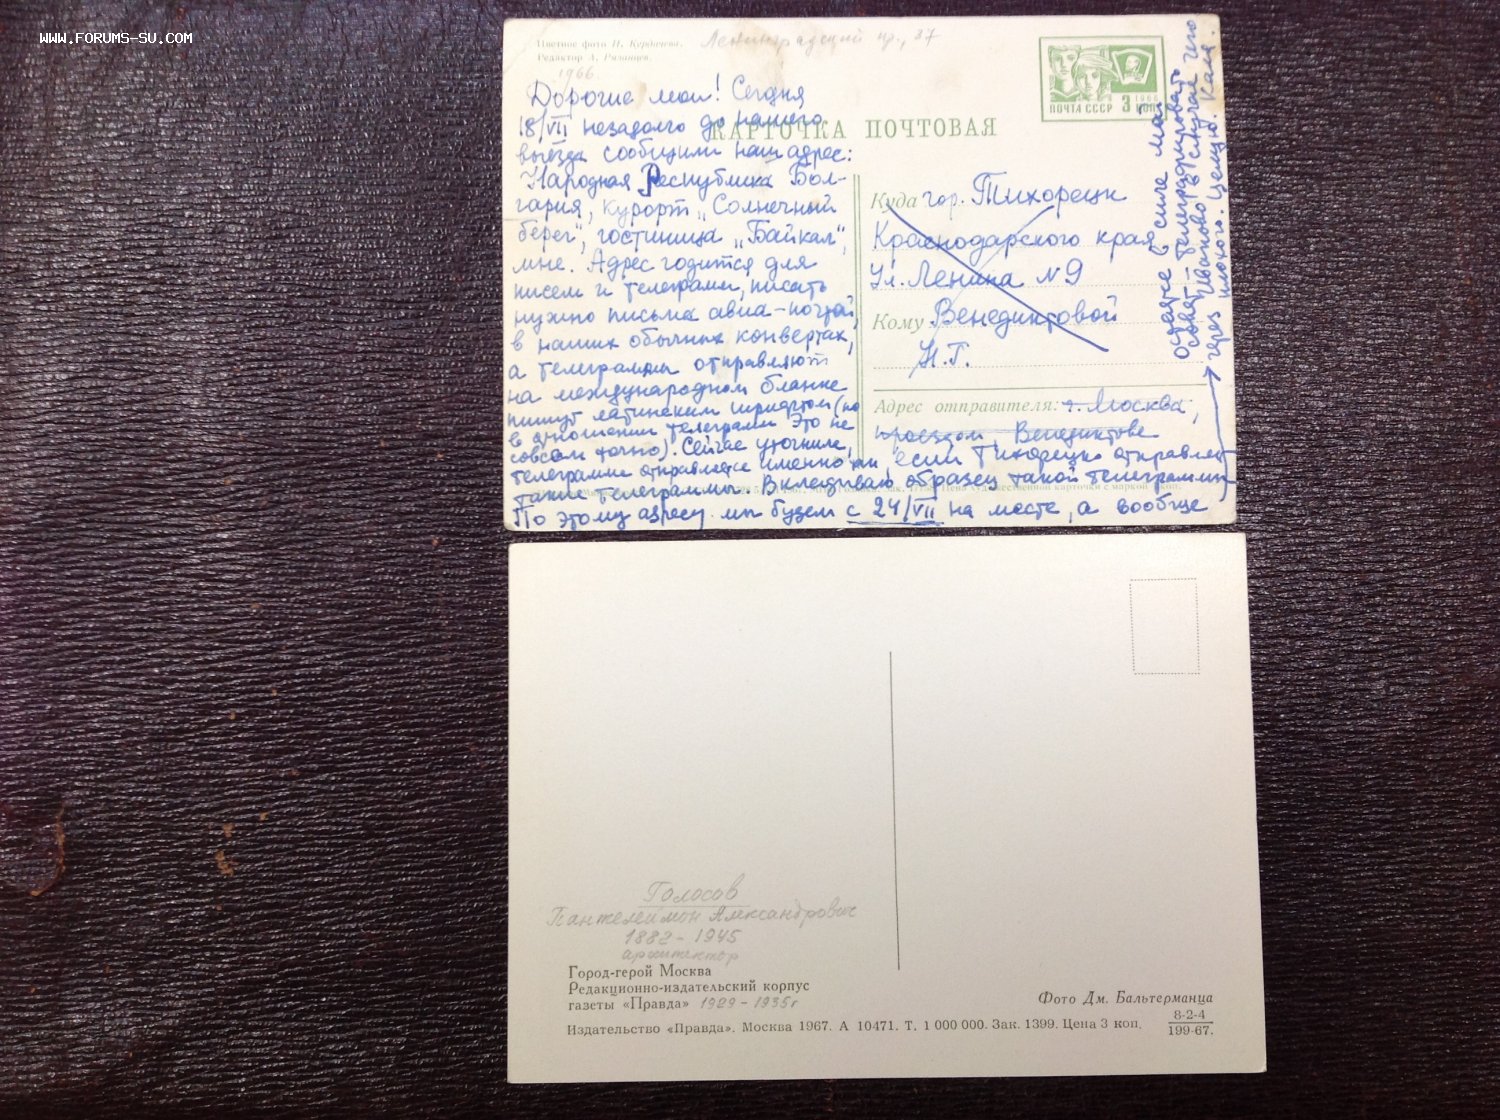 WWW.FORUMS-SU.COM
Цветное фото
Редактор
Ленинградский пр., 37
1966
ПОЧТА СССР 3 КОП
1966
КАРТОЧКА ПОЧТОВАЯ
Дорогие мои! Сегодня
18/VII незадолго до нашего
выезда сообщили наш адрес:
Народная Республика Бол-
гария, курорт „Солнечный
берег", гостиница „Байкал",
мне. Адрес годится для
писем и телеграмм, писать
нужно письма авиа-почтой,
в наших обычных конвертах,
а телеграммы отправляют
на международном бланке
пишут латинским шрифтом (но
в отношении телеграмм это не
совсем точно). Сейчас уточнили,
телеграммы отправляете именно так, если Тихорецк отправляет
такие телеграммы. Вкладываю образец такой телеграммы
По этому адресу мы будем с 24/VII на месте, а вообще
Куда гор. Тихорецк
Краснодарского края
Ул. Ленина N 9
Кому Венедиктовой
Н.Г.
Адрес отправителя: г. Москва,
проездом, Венедиктове
остаётся в силе мой
совет – телеграфировать
через Иваново в случае чего
плохого. Целую. Каля.
Голосов
Пантелеймон Александрович
1882 – 1945
архитектор
Город-герой Москва
Редакционно-издательский корпус
газеты «Правда» 1929 – 1935г
Фото Дм. Бальтерманца
Издательство «Правда». Москва 1967. А 10471. Т. 1 000 000. Зак. 1399. Цена 3 коп.
8-2-4
199-67.